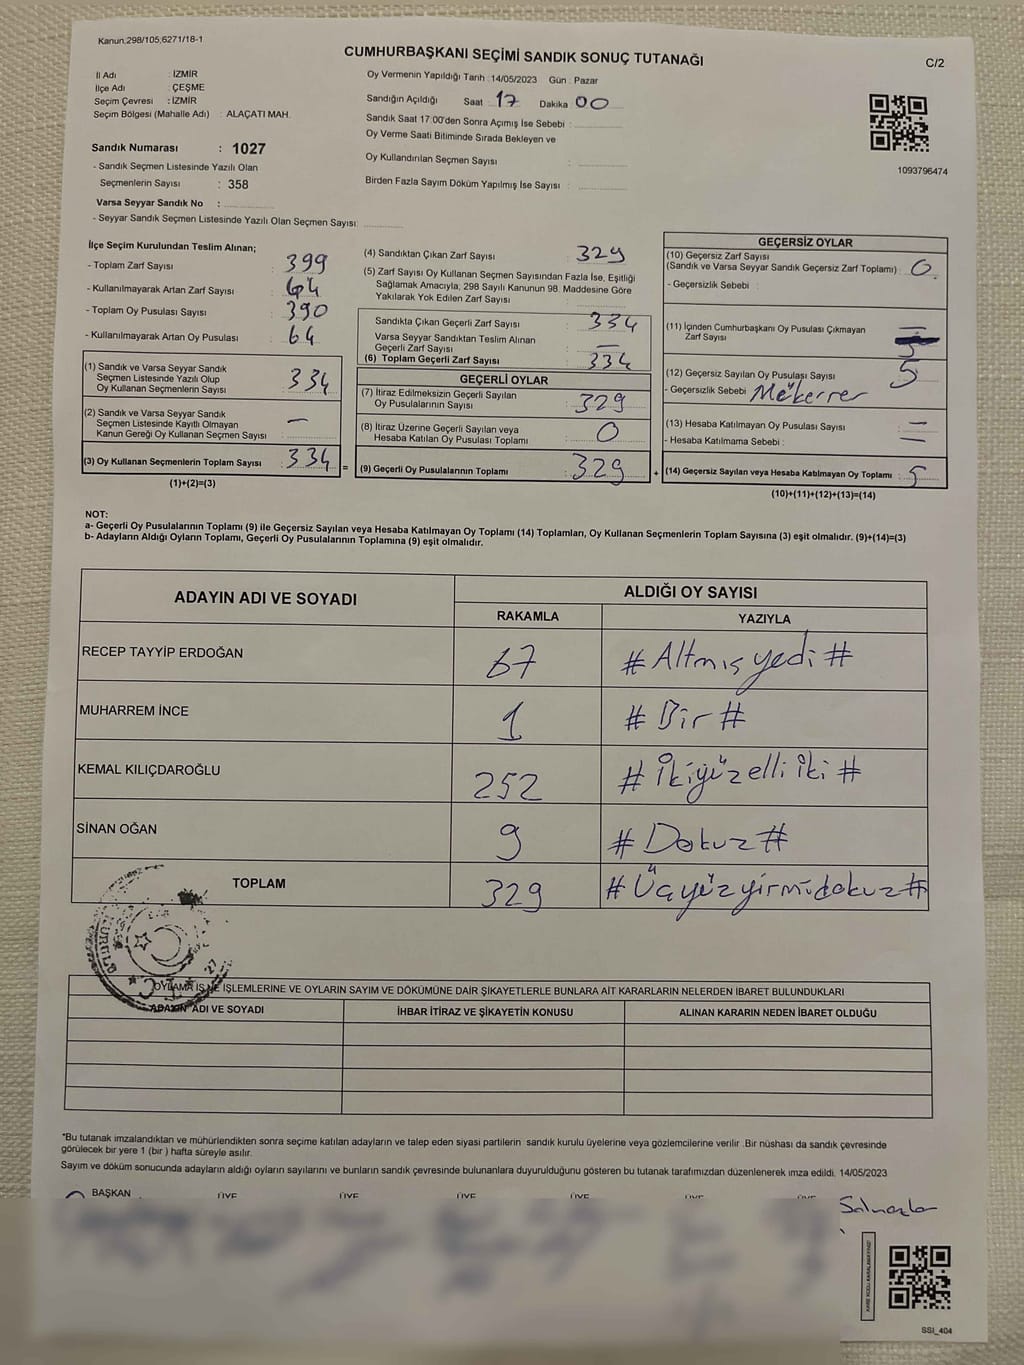 Kanun:298/105,6271/18-1
CUMHURBAŞKANI SEÇİMİ SANDIK SONUÇ TUTANAĞI
C/2
İl Adı : İZMİR
İlçe Adı : ÇEŞME
Seçim Çevresi : İZMİR
Seçim Bölgesi (Mahalle Adı) : ALAÇATI MAH.
Oy Vermenin Yapıldığı Tarih :14/05/2023 Gün : Pazar
Sandığın Açıldığı Saat 17 Dakika 00
Sandık Saat 17:00'den Sonra Açımış İse Sebebi :
Oy Verme Saati Bitiminde Sırada Bekleyen ve
Oy Kullandırılan Seçmen Sayısı :
Birden Fazla Sayım Döküm Yapılmış İse Sayısı :
1093796474
Sandık Numarası : 1027
- Sandık Seçmen Listesinde Yazılı Olan
Seçmenlerin Sayısı : 358
Varsa Seyyar Sandık No :
- Seyyar Sandık Seçmen Listesinde Yazılı Olan Seçmen Sayısı:
İlçe Seçim Kurulundan Teslim Alınan;
- Toplam Zarf Sayısı : 399
- Kullanılmayarak Artan Zarf Sayısı : 64
- Toplam Oy Pusulası Sayısı : 390
- Kullanılmayarak Artan Oy Pusulası : 64
(1) Sandık ve Varsa Seyyar Sandık
Seçmen Listesinde Yazılı Olup
Oy Kullanan Seçmenlerin Sayısı : 334
(2) Sandık ve Varsa Seyyar Sandık
Seçmen Listesinde Kayıtlı Olmayan
Kanun Gereği Oy Kullanan Seçmen Sayısı : —
(3) Oy Kullanan Seçmenlerin Toplam Sayısı : 334 =
(1)+(2)=(3)
(4) Sandıktan Çıkan Zarf Sayısı : 329
(5) Zarf Sayısı Oy Kullanan Seçmen Sayısından Fazla İse, Eşitliği
Sağlamak Amacıyla, 298 Sayılı Kanunun 98. Maddesine Göre
Yakılarak Yok Edilen Zarf Sayısı :
Sandıkta Çıkan Geçerli Zarf Sayısı : 334
Varsa Seyyar Sandıktan Teslim Alınan
Geçerli Zarf Sayısı : —
(6) Toplam Geçerli Zarf Sayısı : 334
GEÇERLİ OYLAR
(7) İtiraz Edilmeksizin Geçerli Sayılan
Oy Pusulalarının Sayısı : 329
(8) İtiraz Üzerine Geçerli Sayılan veya
Hesaba Katılan Oy Pusulası Toplamı : 0
(9) Geçerli Oy Pusulalarının Toplamı : 329 +
GEÇERSİZ OYLAR
(10) Geçersiz Zarf Sayısı
(Sandık ve Varsa Seyyar Sandık Geçersiz Zarf Toplamı) : 0
- Geçersizlik Sebebi :
(11) İçinden Cumhurbaşkanı Oy Pusulası Çıkmayan
Zarf Sayısı : —
(12) Geçersiz Sayılan Oy Pusulası Sayısı : 5
- Geçersizlik Sebebi : Mükerrer
(13) Hesaba Katılmayan Oy Pusulası Sayısı : —
- Hesaba Katılmama Sebebi : —
(14) Geçersiz Sayılan veya Hesaba Katılmayan Oy Toplamı : 5
(10)+(11)+(12)+(13)=(14)
NOT:
a- Geçerli Oy Pusulalarının Toplamı (9) ile Geçersiz Sayılan veya Hesaba Katılmayan Oy Toplamı (14) Toplamları, Oy Kullanan Seçmenlerin Toplam Sayısına (3) eşit olmalıdır. (9)+(14)=(3)
b- Adayların Aldığı Oyların Toplamı, Geçerli Oy Pusulalarının Toplamına (9) eşit olmalıdır.
ADAYIN ADI VE SOYADI
ALDIĞI OY SAYISI
RAKAMLA YAZIYLA
RECEP TAYYİP ERDOĞAN 67 # Altmış yedi #
MUHARREM İNCE 1 # Bir #
KEMAL KILIÇDAROĞLU 252 # İkiyüz elli iki #
SİNAN OĞAN 9 # Dokuz #
TOPLAM 329 # Üçyüz yirmidokuz #
T.C.
OYLAMA İŞ VE İŞLEMLERİNE VE OYLARIN SAYIM VE DÖKÜMÜNE DAİR ŞİKAYETLERLE BUNLARA AİT KARARLARIN NELERDEN İBARET BULUNDUKLARI
ADAYIN ADI VE SOYADI İHBAR İTİRAZ VE ŞİKAYETİN KONUSU ALINAN KARARIN NEDEN İBARET OLDUĞU
*Bu tutanak imzalandıktan ve mühürlendikten sonra seçime katılan adayların ve talep eden siyasi partilerin sandık kurulu üyelerine veya gözlemcilerine verilir .Bir nüshası da sandık çevresinde
görülecek bir yere 1 (bir ) hafta süreyle asılır.
Sayım ve döküm sonucunda adayların aldığı oyların sayılarını ve bunların sandık çevresinde bulunanlara duyurulduğunu gösteren bu tutanak tarafımızdan düzenlenerek imza edildi. 14/05/2023
BAŞKAN ÜYE ÜYE ÜYE ÜYE ÜYE ÜYE
SSI_404